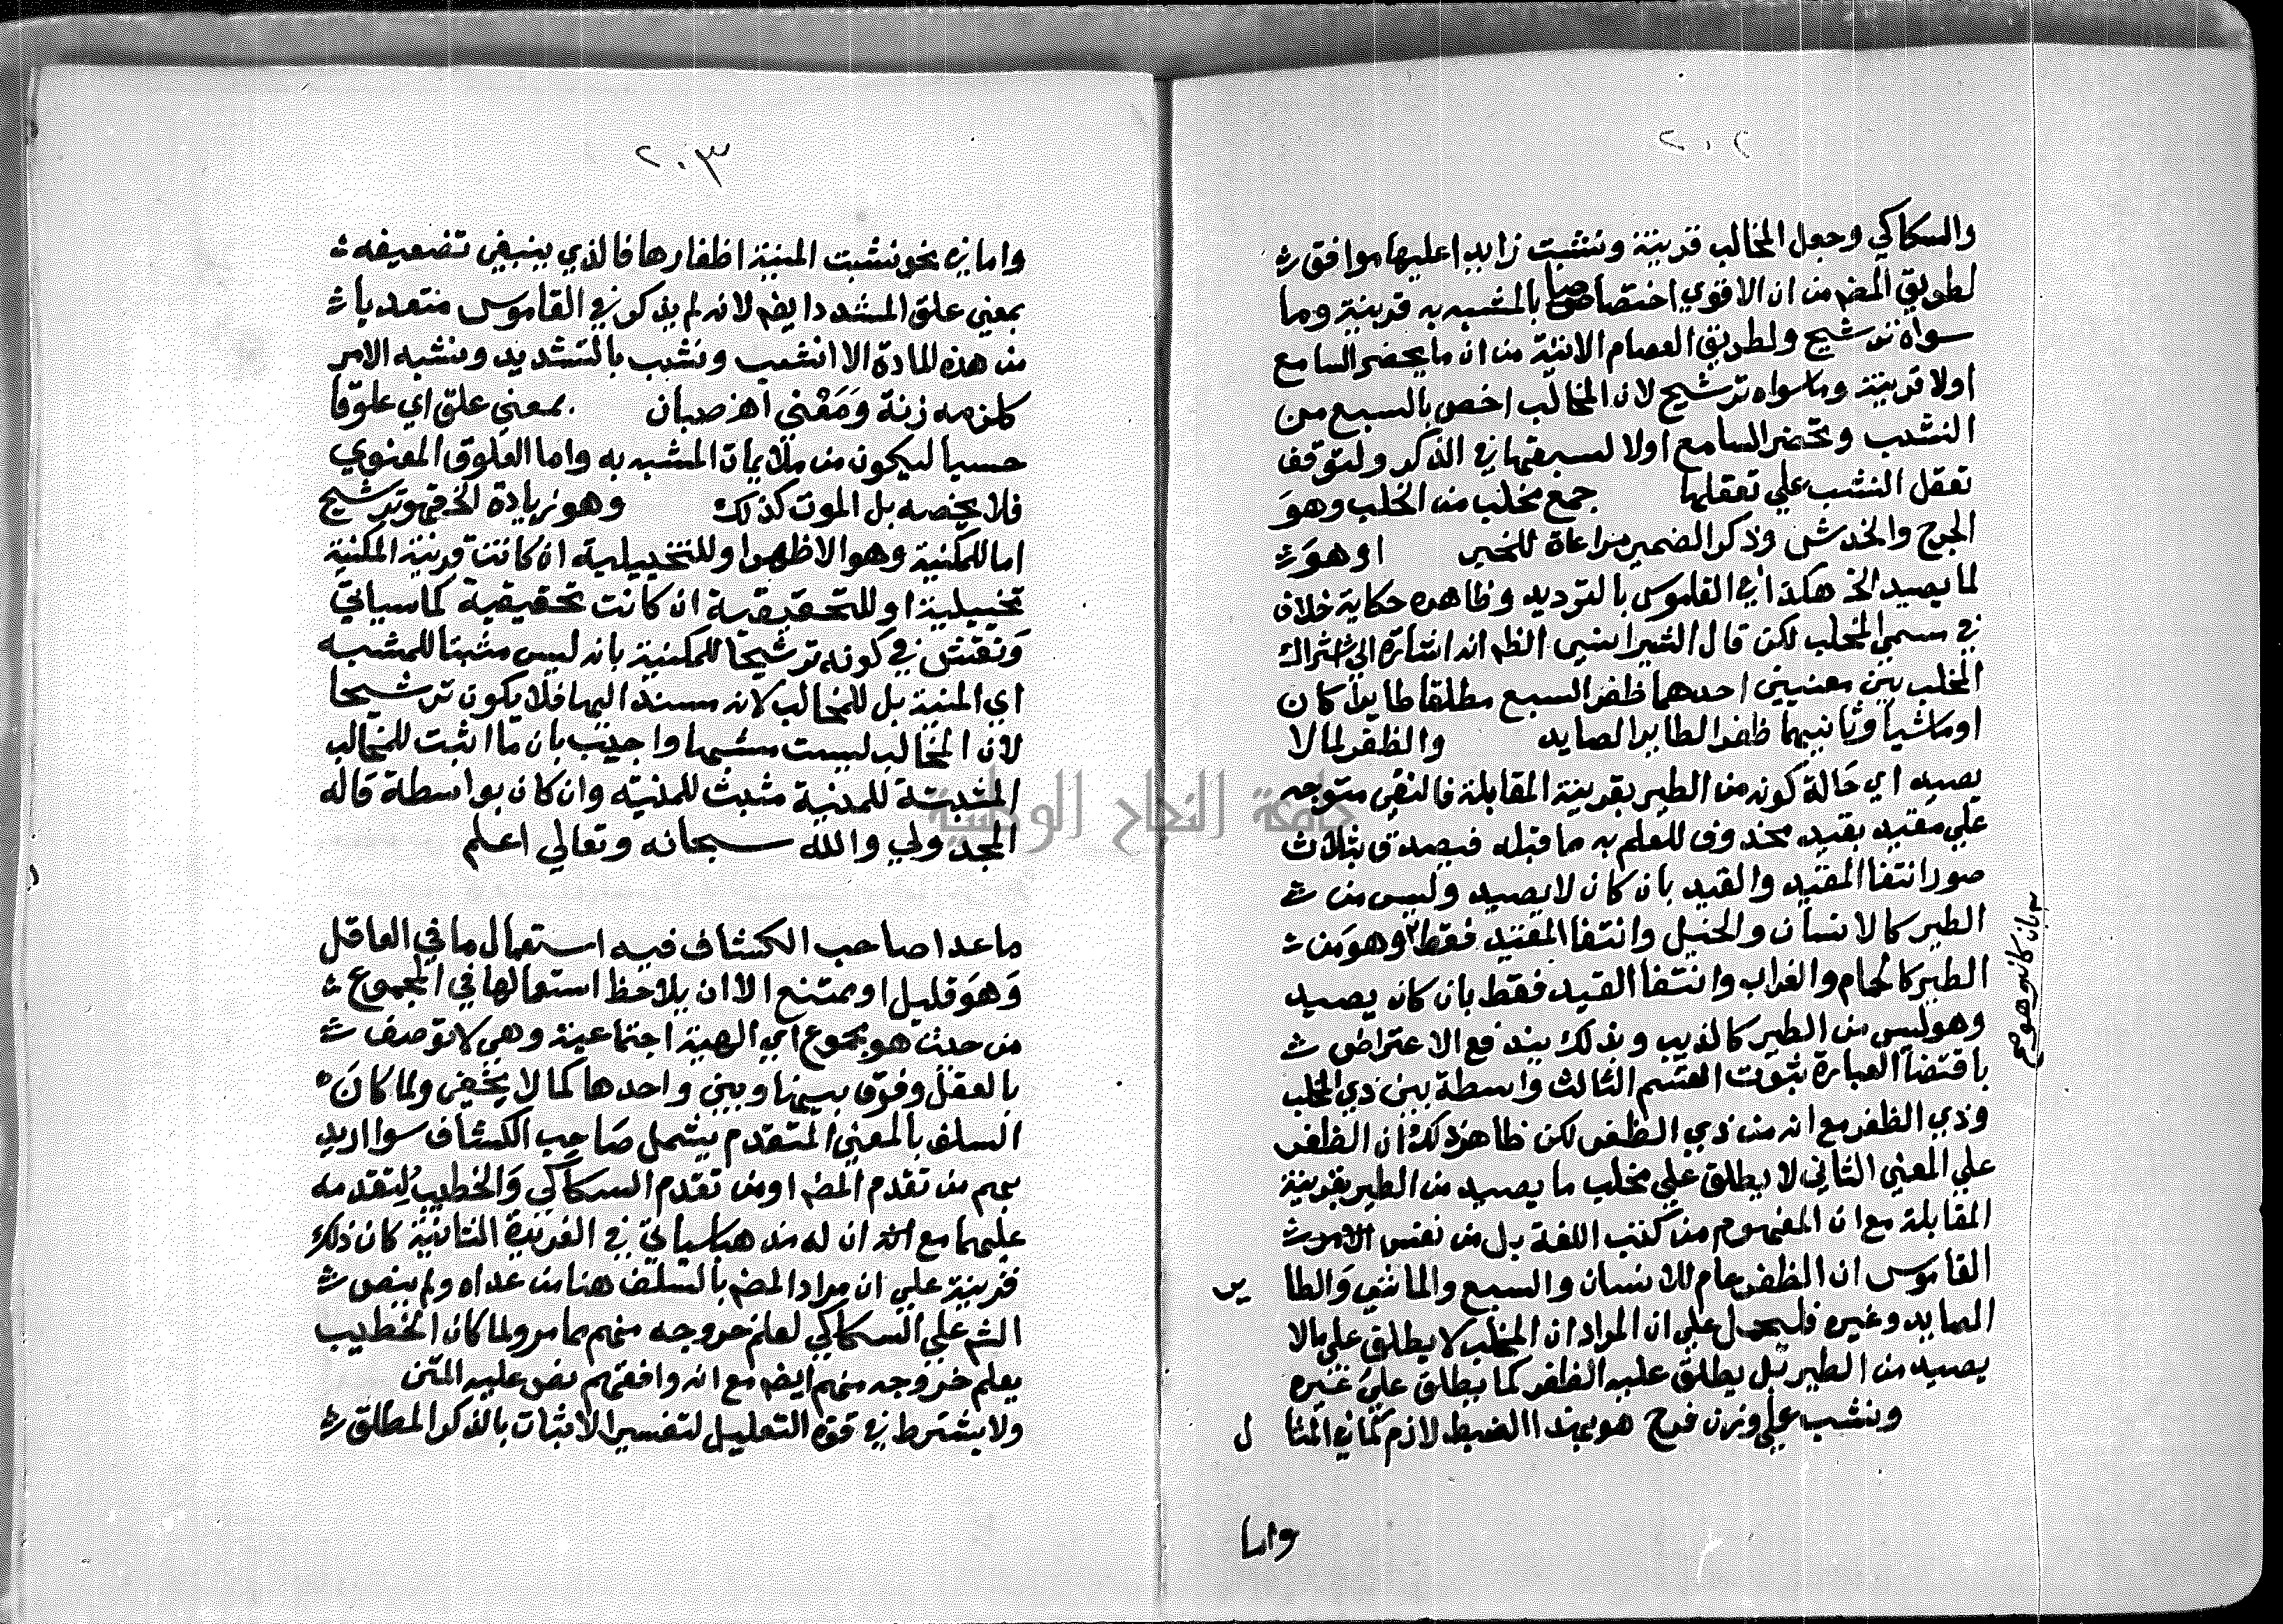 ٢٠٢
والسكاكي وجعل المخالب قرينة ونشبت زايدا عليها موافق
لطريق المصم من ان الاقوي اختصاصا بالمشبه به قرينة وما
سواه ترشيح ولطريق العصام الاتية من ان ما يحضر السامع
اولا قرينة وما سواه ترشيح لان المخالب اخص بالسبع من
النشب وتحضر السامع اولا لسبقها في الذكر ولتوقف
تعقل النشب علي تعقلها جمع مخلب من الخلب وهو
الجرح والخدش وذكر الضمير مراعاة للخبر او هو
لما يصيد الخ هكذا في القاموس بالترديد وظاهره حكاية خلاف
في مسمي المخلب لكن قال الشيرانسي الظم انه اشارة الي اشتراك
المخلب بين معنيين احدهما ظفر السبع مطلقا طايرا كان
او ماشيا وثانيهما ظفر الطاير الصايد والظفر لما لا
يصيد اي حالة كونه من الطير بقرينة المقابلة فالنفي متوجه
علي مقيد بقيد محذوف للعلم به ما قبله فيصدق بثلاث
صور انتفا المقيد والقيد بان كان لا يصيد وليس من
الطير كالانسان والخيل وانتفا المقيد فقط وهو من
الطير كالحمام والغراب وانتفا القيد فقط بان كان يصيد
وهو ليس من الطير كالذيب وبذلك يندفع الاعتراض
باقتضا العبارة بثبوت القسم الثالث واسطة بين ذي المخلب
وذي الظفر مع انه من ذي الظفر لكن ظاهر ذلك ان الظفر
علي المعني الثاني لا يطلق علي مخلب ما يصيد من الطير بقرينة
المقابلة مع ان المفهوم من كتب اللغة بل من نفس
القاموس ان الظفر عام للانسان والسبع والماشي والطاير
الصايد وغيره فليحمل علي ان المراد ان المخلب لا يطلق علي مالا
يصيد من الطير بل يطلق عليه الظفر كما يطلق علي غيره
ونشب علي وزن فرح هو بهذا الضبط لازم كما في المثال
واما
٢٠٣
واما في نحو نشبت المنية اظفارها فالذي ينبغي تضعيفه
بمعني علق المشدد ايضم لانه لم يذكر في القاموس متعديا
من هذه المادة الا انشب ونشب بالتشديد ونشبه الامر
كلزمه زنة ومعني اهـ صبان بمعني علق اي علوقا
حسيا ليكون من ملايمات المشبه به واما العلوق المعنوي
فلا يخصه بل الموت كذلك وهو زيادة الخ فهو ترشيح
اما للمكنية وهو الاظهر او للتخييلية ان كانت قرينة المكنية
تخييلية او للتحقيقية ان كانت تحقيقية كما سياتي
ونقش في كونه ترشيحا للمكنية بانه ليس مثبتا للمشبه
اي المنية بل للمخالب لانه مسند اليها فلا يكون ترشيحا
لان المخالب ليست مشبها واجيب بان ما اثبت للمخالب
المثبتة للمنية مثبث للمنية وان كان بواسطة قاله
المجدولي والله سبحانه وتعالي اعلم
ما عدا صاحب الكشاف فيه استعمال ما في العاقل
وهو قليل او ممتنع الا ان يلاحظ استعمالها في المجموع
من حيث هو مجموع اي الهية اجتماعية وهي لا توصف
بالعقل وفرق بينها وبين واحدها كما لا يخفي ولما كان
السلف بالمعني المتقدم يشمل صاحب الكشاف سوا اريد
بهم من تقدم المصم او من تقدم السكاكي والخطيب لتقدمه
عليهما مع ان له مذهبا سياتي في الفريدة الثانية كان ذلك
قرينة علي ان مراد المصم بالسلف هنا من عداه ولم ينص
الشم علي السكاكي لعلم خروجه منهم مما مر ولما كان الخطيب
يعلم خروجه منهم ايضم مع انه وافقهم نص عليه المتن
ولا يشترط في قوة التعليل لتفسير الاثبات بالذكر المطلق
جامعة النجاح الوطنية